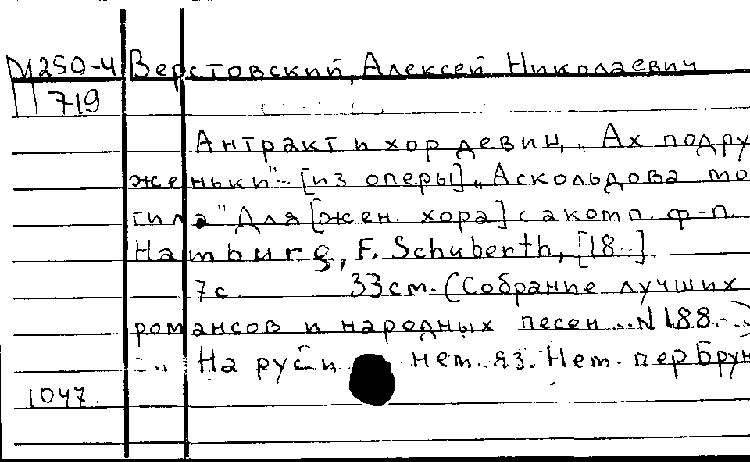 М250-4 Верстовский, Алексей Николаевич
П 719
Антракт и хор девиц „Ах подру
женьки" [из оперы] „Аскольдова мо
гила" Для [жен. хора] с акомп. ф-п.
Hamburg, F. Schuberth, [18..].
7с 33см. (Собрание лучших
романсов и народных песен .. N 188..)
На русск и нем. яз. Нем. пер Брун
1047